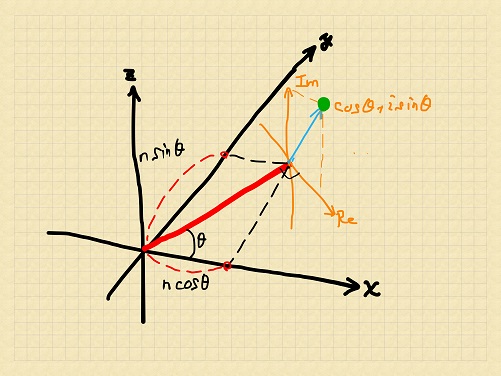 y
z
Im
cosθ+isinθ
n sinθ
θ
Re
n cosθ
x